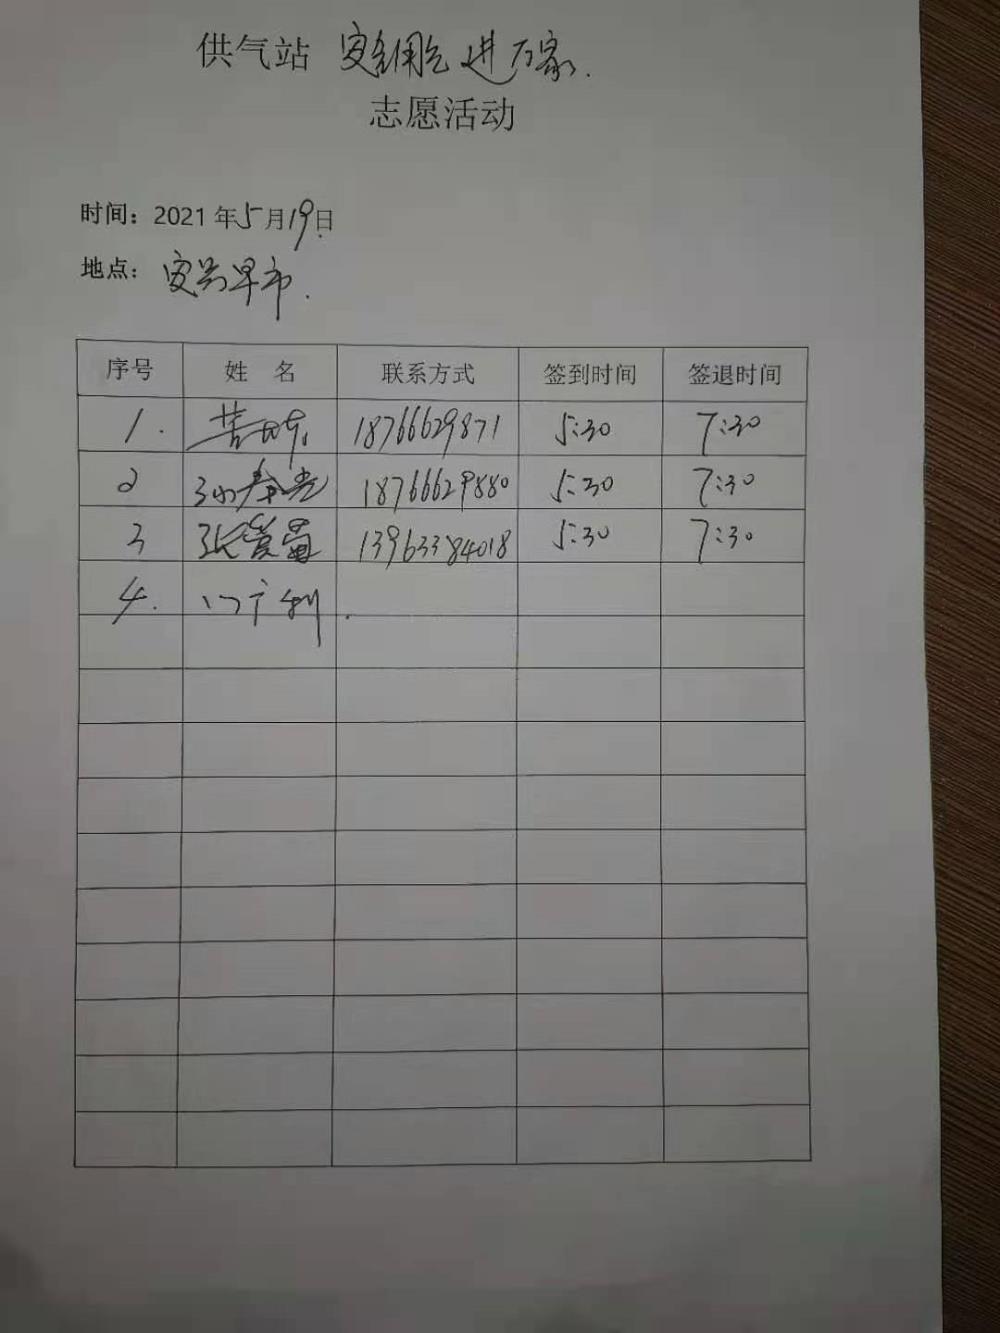 供气站 安全用气进万家.
志愿活动
时间：2021年5月19日
地点：安兴早市.
序号 姓 名 联系方式 签到时间 签退时间
1. 18766629871 5:30 7:30
2 孙春光 18766629880 5:30 7:30
3 张 13963384018 5:30 7:30
4.